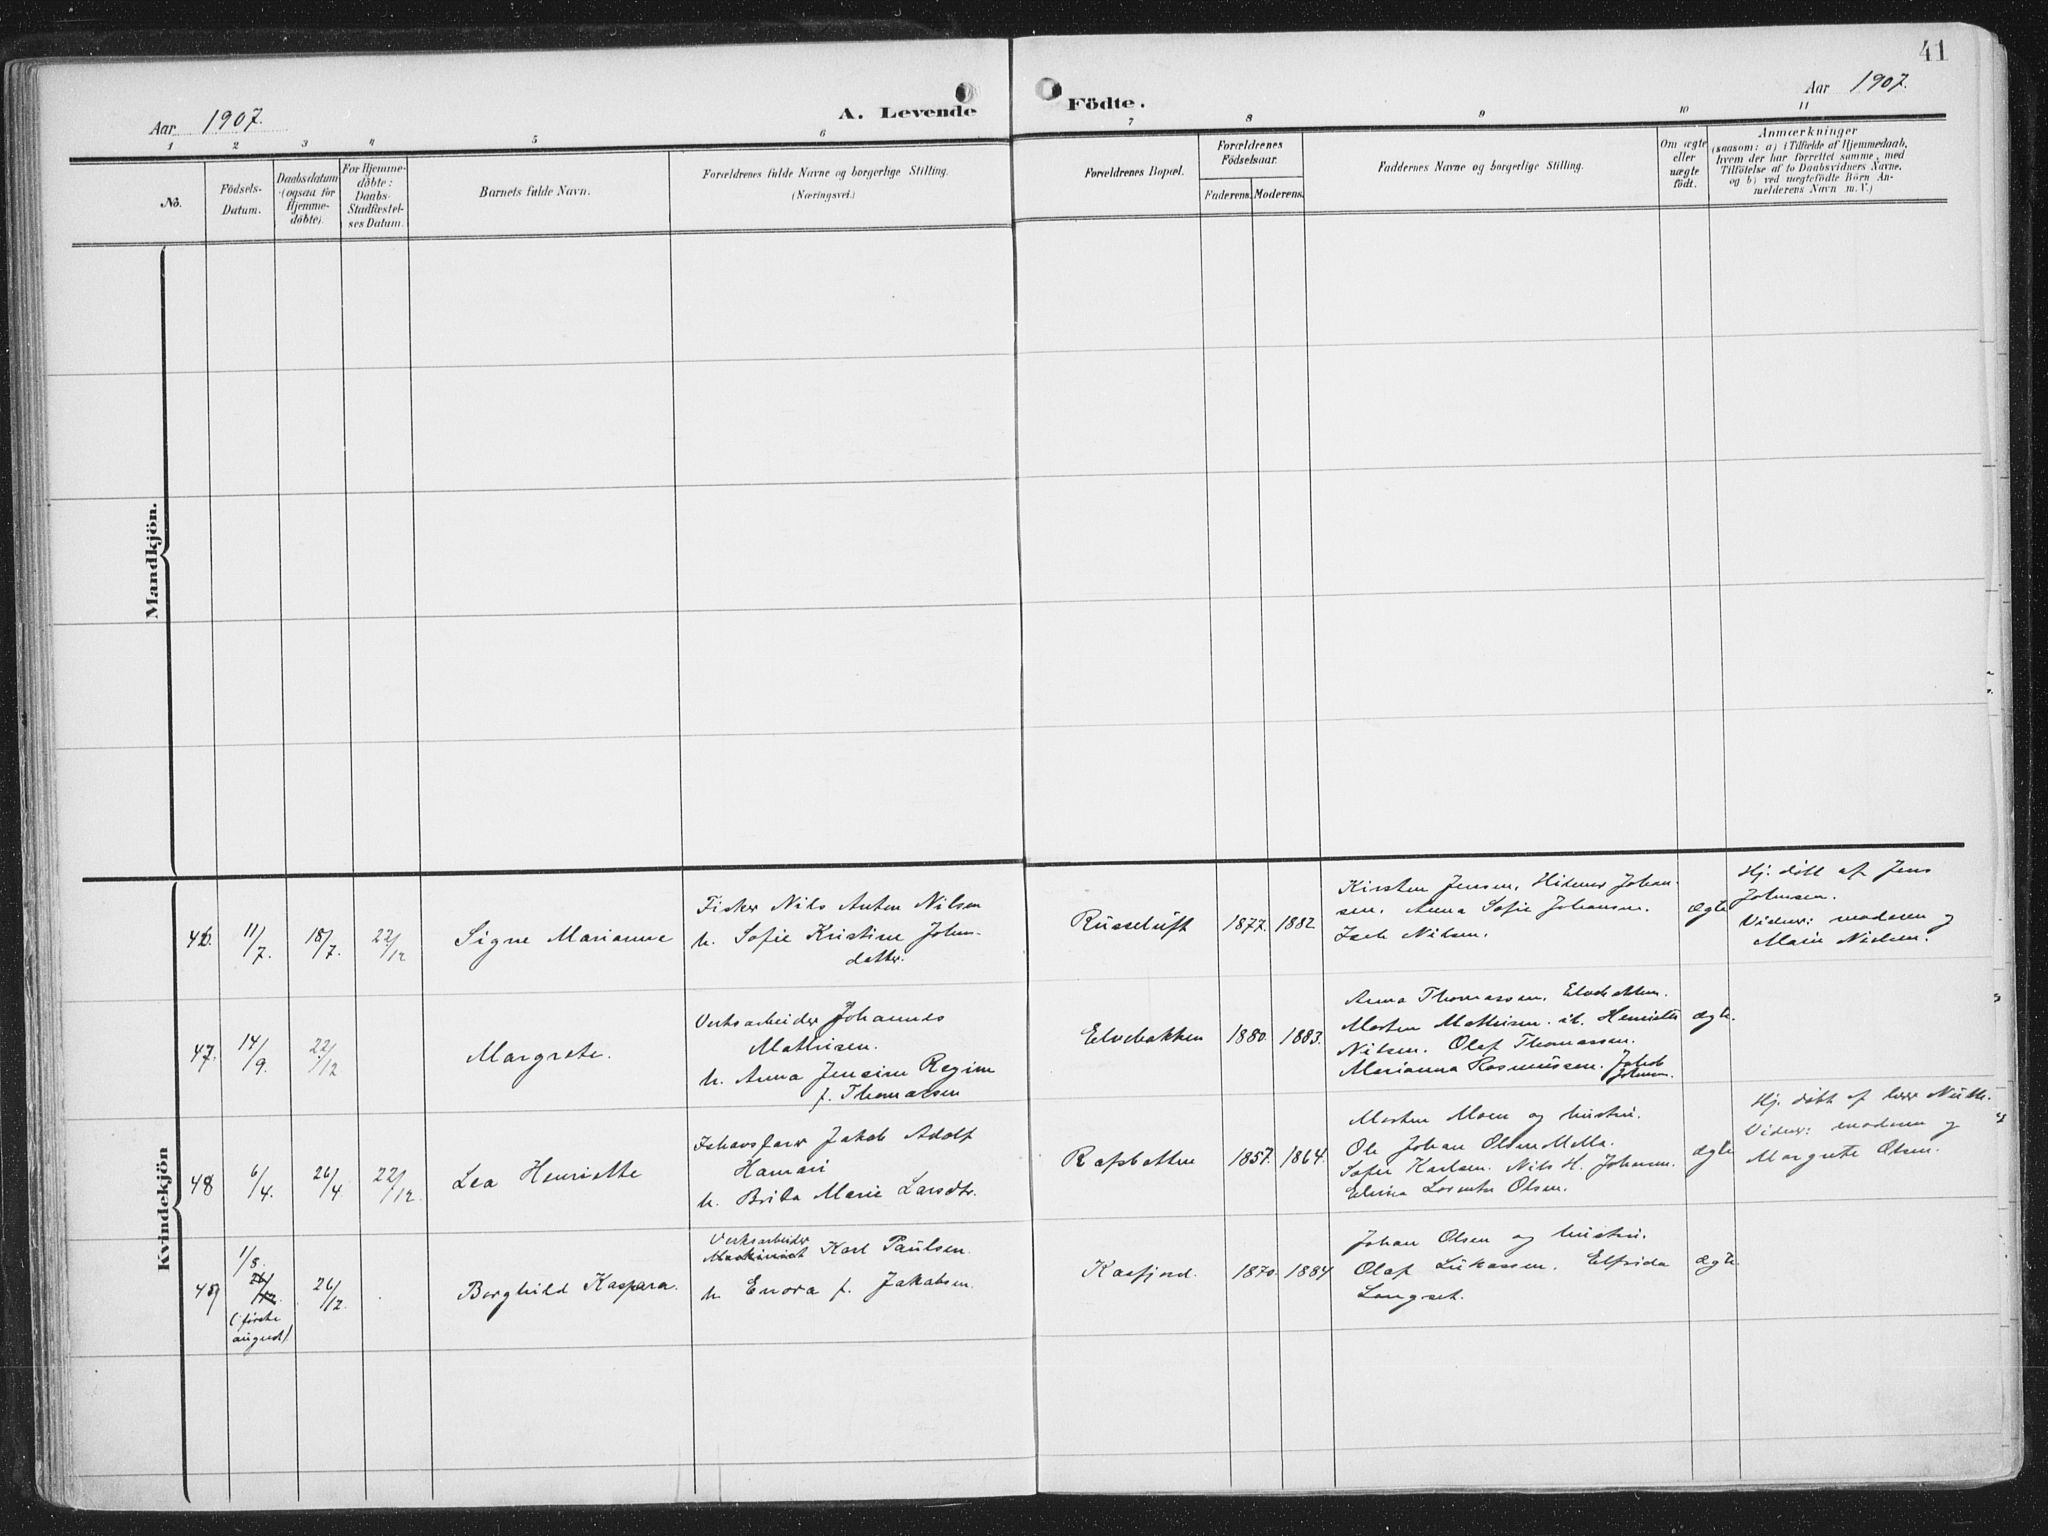 41
Aar 1907.
A. Levende
Födte.
Aar 1907.
1 2 3 4 5 6 7 8 9 10 11
No.
Födsels-
Datum.
Daabsdatum
(ogsaa for
Hjemme-
döbte).
For Hjemme-
döbte:
Daabs-
Stadfæstel-
ses Datum.
Barnets fulde Navn.
Forældrenes fulde Navne og borgerlige Stilling.
(Næringsvei.)
Forældrenes Bopæl.
Forældrenes
Födselsaar.
Faderens. Moderens.
Faddernes Navne og borgerlige Stilling.
Om ægte
eller
uægte
födt.
Anmærkninger
(saasom: a) i Tilfælde af Hjemmedaab,
hvem der har forrettet samme, med
Tilföielse af to Daabsvidners Navne.
og b) ved uægtefödte Börn An-
melderens Navn m. V.)
Mandkjön.
Kvindekjön
46.
11/7.
18/7.
22/12
Signe Marianne
Fisker Nils Anton Nilsen
h. Sofie Kristine John-
datter.
Russeluft
1877.
1882
Kirsten Jensen. Johan-
sen. Anna Sofie Johansen.
Nilsen.
ægte
Hj. döbt af Jens
Johnsen.
Vidner: moderen og
Marie Nielsen.
47.
14/9.
22/12
Margrete.
Verksarbeider Johannes
Mathisen.
h. Anna Jensine Regine
f. Thomassen
Elvebakken
1880.
1883.
Anna Thomassen. Elvebakken.
Morten Mathisen. ib. Henriette
Nilsen. Olaf Thomassen.
Marianna Rasmussen. Jakob
Johnsen.
ægte.
48
6/4.
26/4
22/12.
Lea Henriette
Ishavsfarer Jakob Adolf
Hamari
h. Brita Marie Larsdtr.
Rafsbotten
1857.
1864.
Morten Moen og hustru.
Ole Johan Olsen Mella.
Sofie Karlsen. Nils H. Johnsen.
Elvina Olsen.
ægte
Hj. döbt af
Vidner: moderen og
Margrete Olsen.
49
1/8.
26/12.
(förste
august)
26/12.
Borghild Kaspara.
Verksarbeider
Maskinist Karl Paulsen.
h. Enora f. Jakobsen
Kaafjord.
1870.
1884
Johan Olsen og hustru.
Olaf Lukassen. Elfrida
Langset.
ægte.